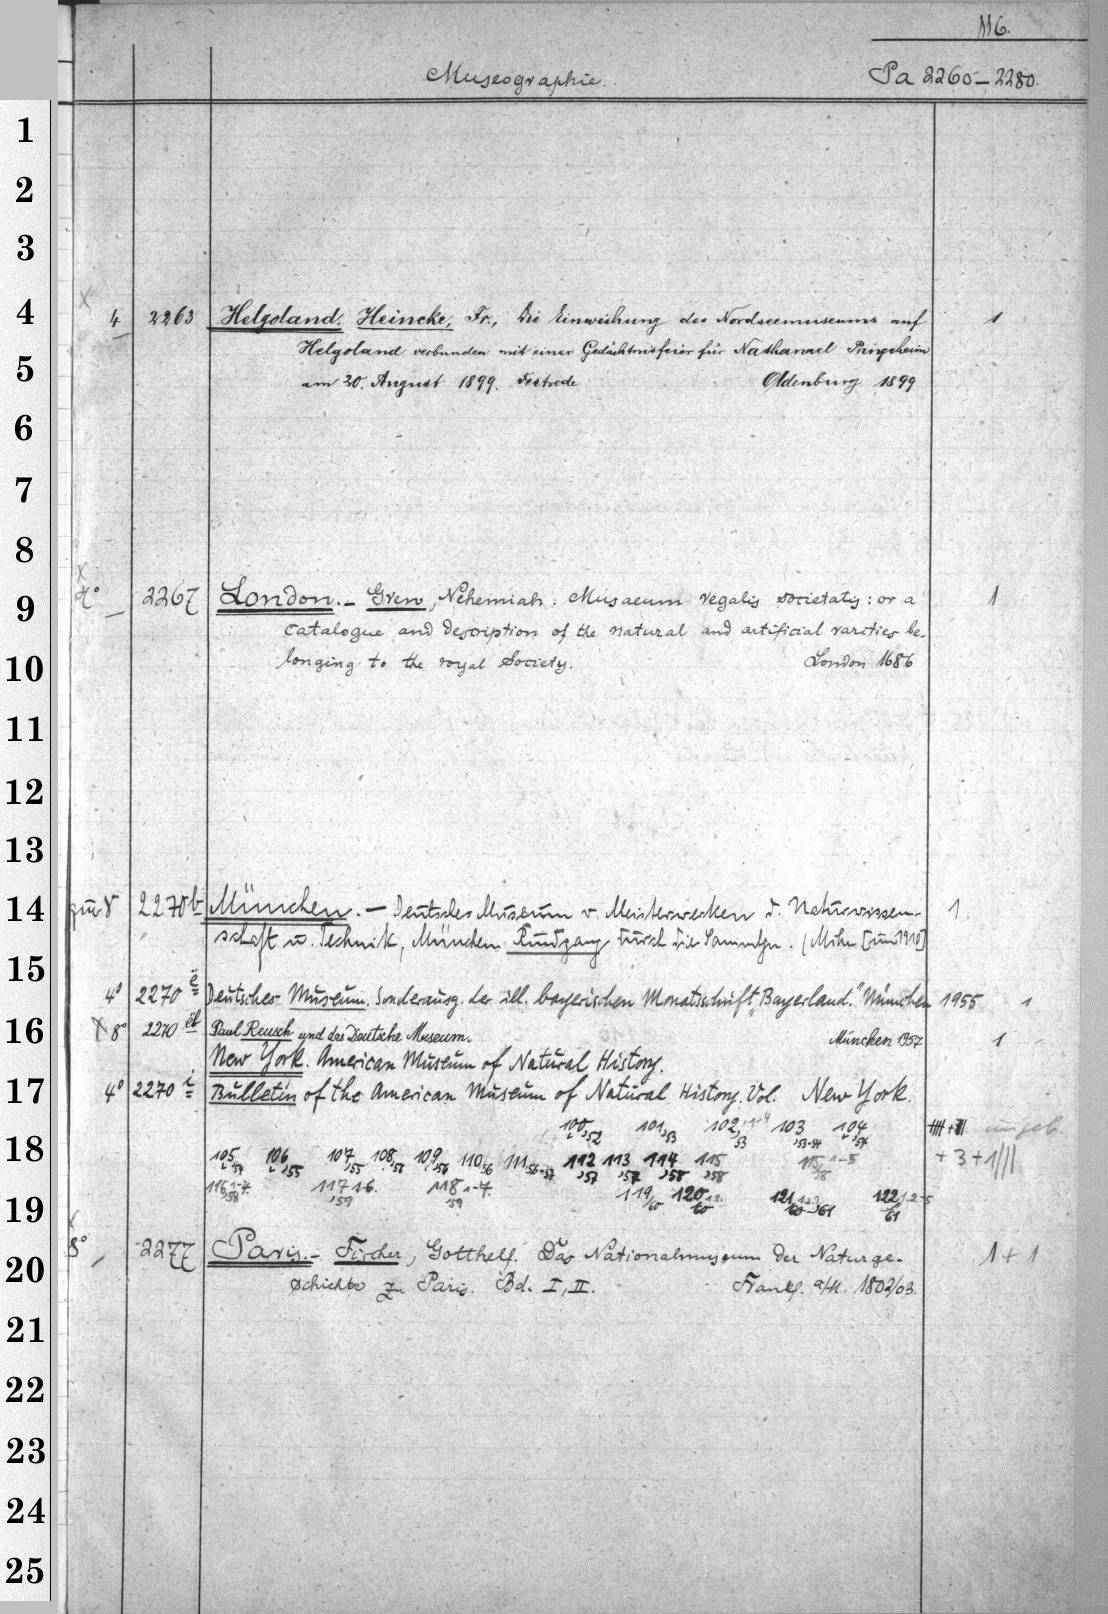 116.
Museographie. Pa 2260–2280.
1
2
3
4 x 4 2263 Helgoland. Heincke, Fr., Die Einweihung des Nordseemuseums auf 1
Helgoland verbunden mit einer Gedächtnisfeier für Nathanael Pringsheim
5 am 30. August 1899. Festrede Oldenburg 1899
6
7
8
x
9 4° 2267 London. – Grew, Nehemiah: Musaeum regalis societatis: or a 1
catalogue and description of the natural and artificial rarities be-
10 longing to the royal Society. London 1686
11
12
13
14 2270b München. – Deutsches Museum v. Meisterwerken d. Naturwissen- 1
schaft u. Technik, München. Rundgang durch die Sammlgn. (Mchn [um 1910]
15 4° 2270 ë Deutsches Museum. Sonderausg. der ill. bayerischen Monatsschrift „Bayerland." München 1955 1
16 x 8° 2270 Paul Reusch und das Deutsche Museum. München 1957 1
New York. American Museum of Natural History.
17 4° 2270 i Bulletin of the American Museum of Natural History. Vol. New York.
100,52 101,53 102,1-4 53 103,53-54 104,54 ungeb.
18 105,54 106,55 107,55 108,55 109,56 110,56 111,56-57 112,57 113,57 114,58 115,58 115,1-5 58 + 3 + 1
116,1-7 58 117,1-6 59 118,1-7 59 119/60 120,1.2. 60 121,1.2.3 60-61 122,1.2-5 61
19
x
8° 2277 Paris. – Fischer, Gotthelf. Das Nationalmuseum der Naturge- 1 + 1
20 schichte zu Paris. Bd. I, II. Frankf. a/M. 1802/03.
21
22
23
24
25